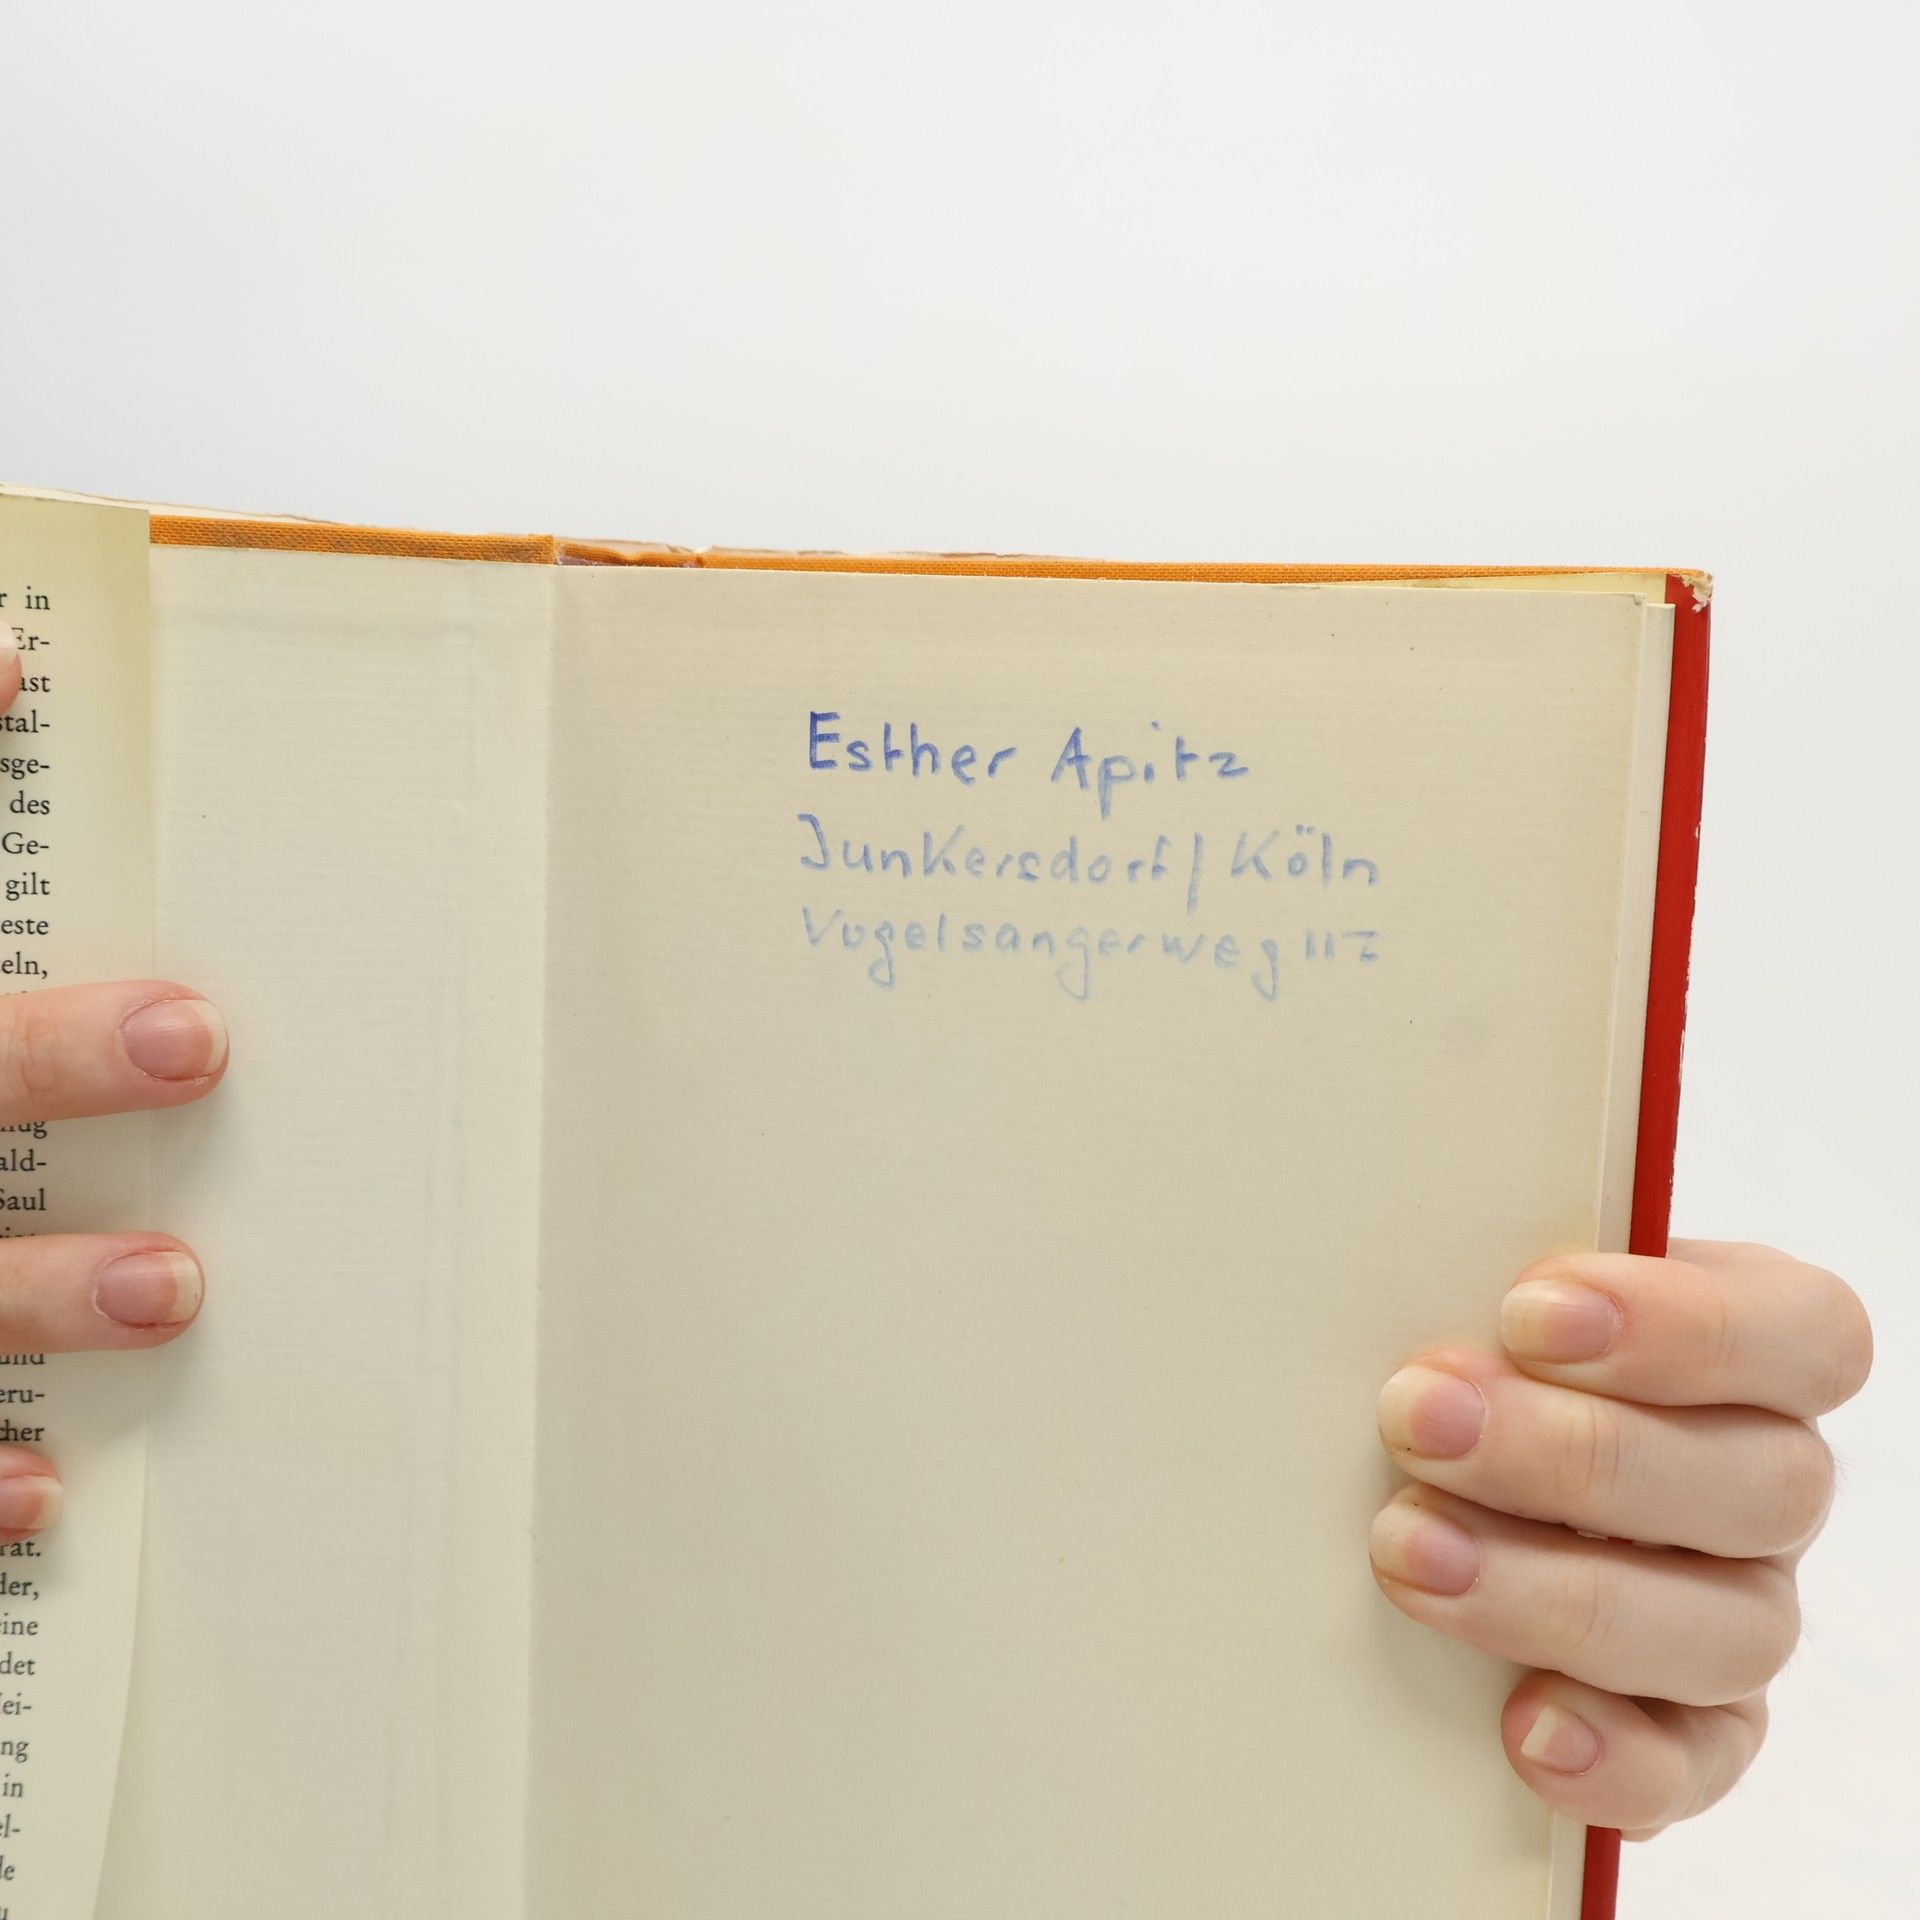 r in
Er-
ast
stal-
sge-
des
Ge-
gilt
este
eln,
ald-
Saul
und
eru-
cher
rat.
der,
eine
det
ei-
ng
in
el-
de
u
Esther Apitz
Junkersdorf / Köln
Vogelsangerweg